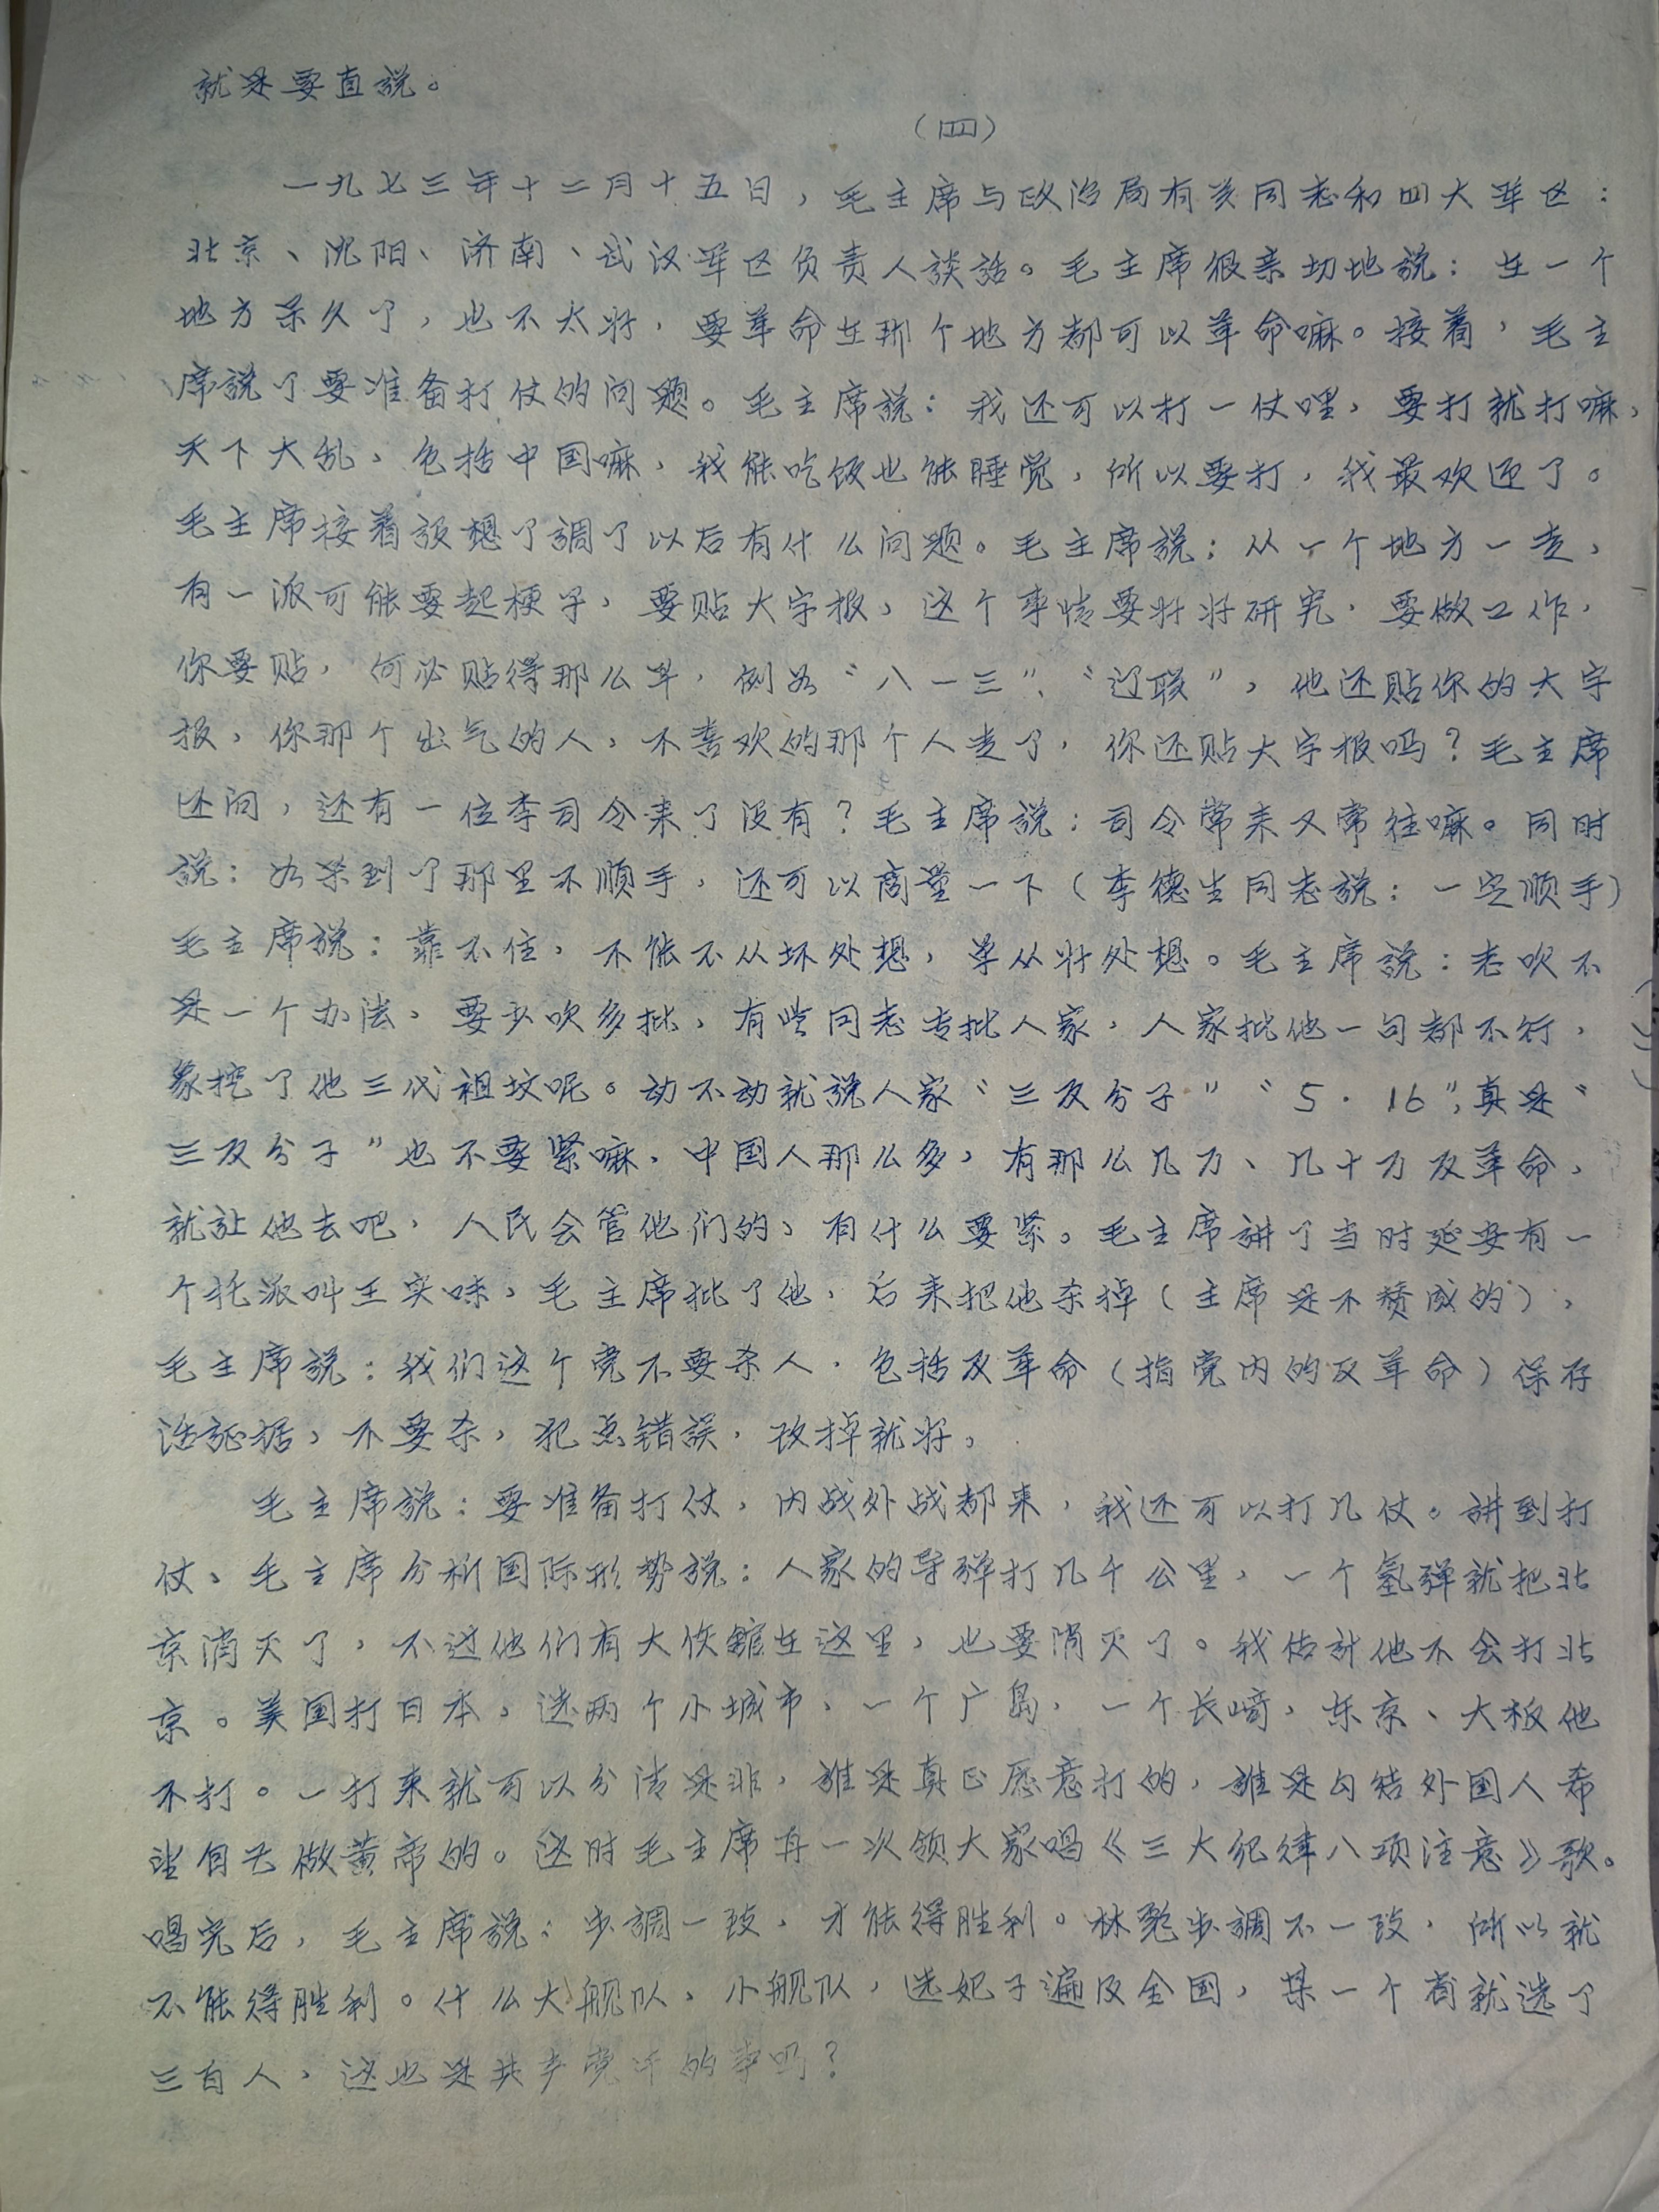 就是要直説。
（四）
一九七三年十二月十五日，毛主席与政治局有关同志和四大军区：
北京、沈阳、济南、武汉军区负责人談話。毛主席很亲切地説：在一个
地方呆久了，也不太好，要革命在那个地方都可以革命嘛。接着，毛主
席説了要准备打仗的问题。毛主席説：我还可以打一仗哩，要打就打嘛，
天下大乱，包括中国嘛，我能吃饭也能睡觉，所以要打，我最欢迎了。
毛主席接着設想了調了以后有什么问题。毛主席説：从一个地方一走，
有一派可能要起梗子，要贴大字报，这个事情要好好研究，要做工作，
你要贴，何必贴得那么早，例如“八一三”、“辽联”，他还贴你的大字
报，你那个出气的人，不喜欢的那个人走了，你还贴大字报吗？毛主席
还问，还有一位李司令来了没有？毛主席説：司令常来又常往嘛。同时
説：如果到了那里不顺手，还可以商量一下（李德生同志説：一定顺手）
毛主席説：靠不住，不能不从坏处想，单从好处想。毛主席説：老吹不
是一个办法，要少吹多批，有些同志专批人家，人家批他一句都不行，
象挖了他三代祖坟呢。动不动就説人家“三反分子”“5·16”，真是“
三反分子”也不要紧嘛，中国人那么多，有那么几万、几十万反革命，
就让他去吧，人民会管他们的，有什么要紧。毛主席講了当时延安有一
个托派叫王实味，毛主席批了他，后来把他杀掉（主席是不赞成的），
毛主席説：我们这个党不要杀人，包括反革命（指党内的反革命）保存
活証据，不要杀，犯点错誤，改掉就好，
毛主席説：要准备打仗，内战外战都来，我还可以打几仗。講到打
仗、毛主席分析国际形势説：人家的导弹打几千公里，一个氢弹就把北
京消灭了，不过他们有大使館在这里，也要消灭了。我估計他不会打北
京。美国打日本，选两个小城市，一个广岛，一个长崎，东京、大板他
不打。一打来就可以分清是非，誰是真正愿意打的，誰是勾结外国人希
望自己做黄帝的。这时毛主席再一次领大家唱《三大纪律八项注意》歌。
唱完后，毛主席説：步調一致，才能得胜利。林彪步調不一致，所以就
不能得胜利。什么大舰队，小舰队，选妃子遍及全国，某一个省就选了
三百人，这也是共产党干的事吗？